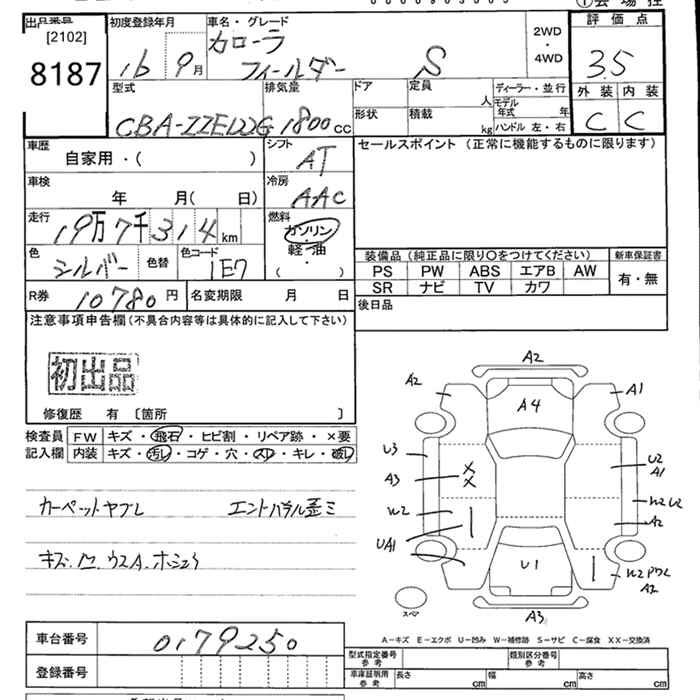 出品番号
[2102]
8187
初度登録年月
16 9月
車名・グレード
カローラ
フィールダー S
2WD
・
4WD
評価点
3.5
型式
CBA-ZZE122G
排気量
1800cc
ドア
形状
定員
人
積載
kg
ディーラー・並行
モデル
年式
年
ハンドル 左・右
外装 内装
C C
車歴
自家用・( )
シフト
AT
車検
年 月( 日)
冷房
AAC
走行
19万7千314km
燃料
ガソリン
軽・油
( )
色
シルバー
色替
色コード
1E7
R券
10780円
名変期限 月 日
セールスポイント (正常に機能するものに限ります)
装備品(純正品に限り○をつけてください)
新車保証書
PS PW ABS エアB AW
有・無
SR ナビ TV カワ
後日品
注意事項申告欄(不具合内容等は具体的に記入して下さい)
初出品
修復歴 有 〔箇所 〕
検査員
記入欄
FW キズ・飛石・ヒビ割・リペア跡・×要
内装 キズ・汚レ・コゲ・穴・スレ・キレ・破レ
カーペットヤブレ
A2
A2 A4 A1
U3 U2
A3 A1
W2 W2 U2
A2
UA1
U1 W2
A3
スペア
A3
車台番号 0179250
登録番号
A−キズ E−エクボ U−凹み W−補修跡 S−サビ C−腐食 XX−交換済
型式指定番号
参考
類別区分番号
参考
車庫証明用
参考
長さ cm 幅 cm 高さ cm